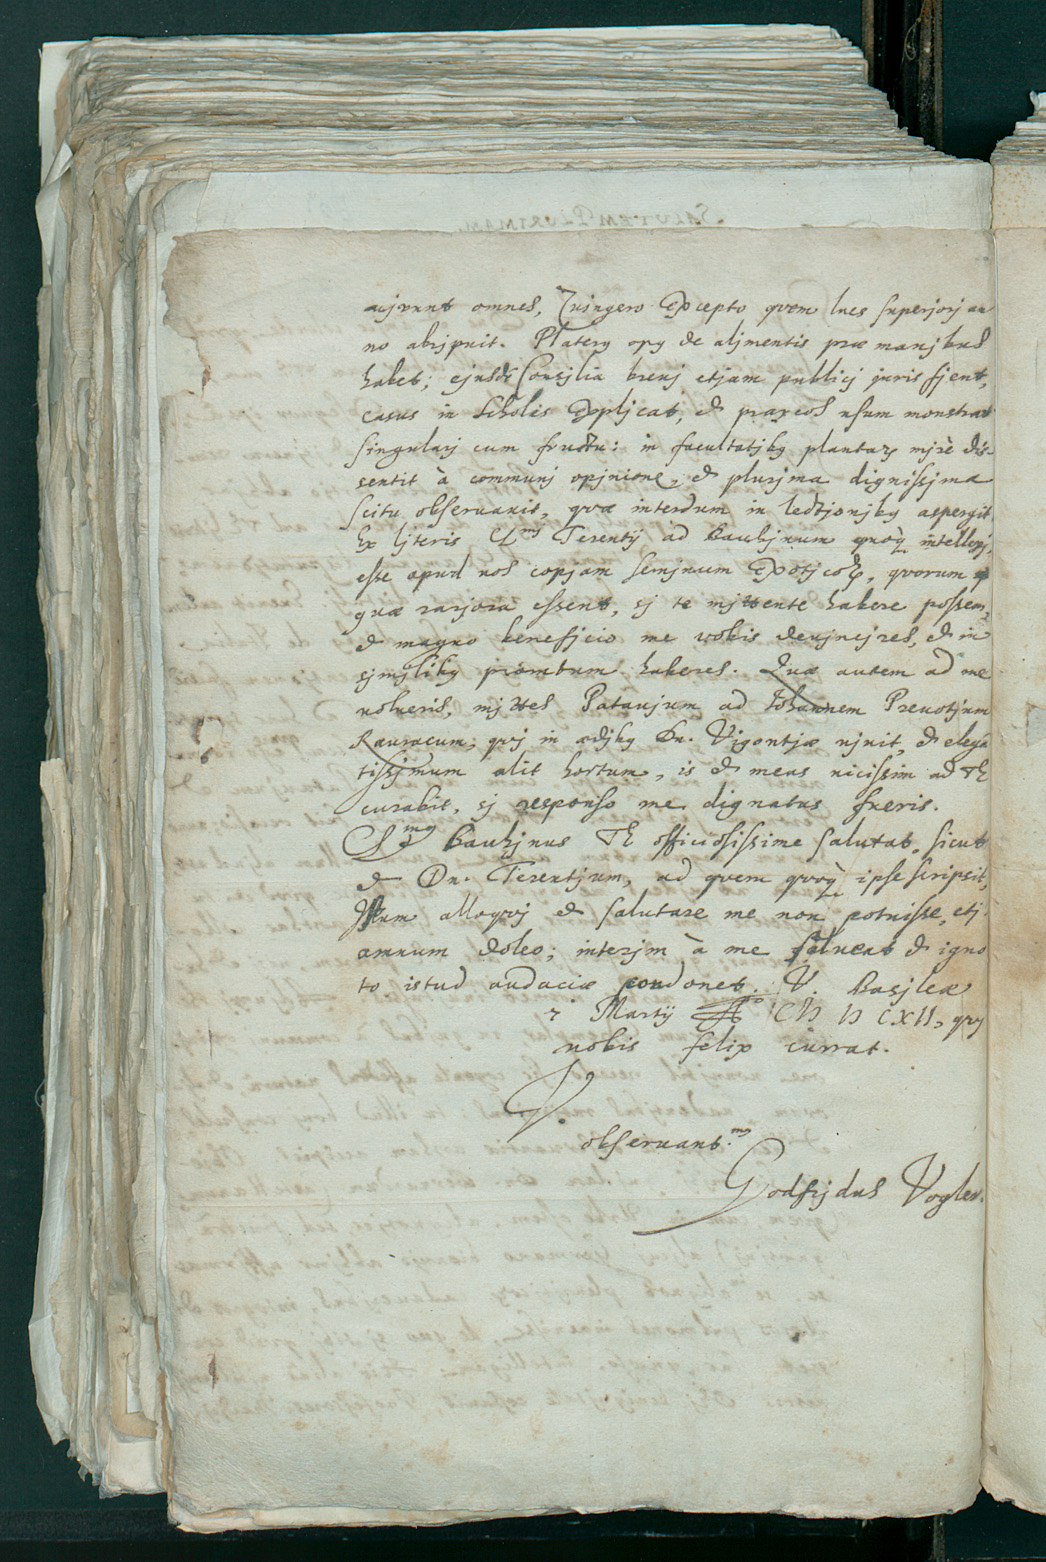 SALUTEM PLURIMAM.
aijvunt omnes, Zuingero excepto quem lues superiorj an
no abripuit. Platery op9 de aljmentis prae manjbus
habet; ejusdē Consilia breuj etjam publicj juris fjent,
casus in scholis explicat, et praxeos usum monstrat
singularj cum fructu: in facultatjb9 plantarū mjrè dis
sentit à communj opjnione, et plurjma dignissjma
scitu obseruauit, quae interdum in lectjonjb9 aspergit
Ex ljteris Cl.mj Terentij ad Bauhjnum quoq; intellexj,
esse apud nos copjam semjnum exoticorū, quorum
quae rarjora essent, sj te mjttente habere possem,
et magno benefjcio me vobis deujncjres, et in
sjmjlib9 promtum haberes. Quae autem ad me
uolueris, mjttes Patauium ad Johannem Preuotjum
Rauracum, quj in aedjb9 Dn. Vigontjae ujuit, et elegā
tissjmum alit hortum, is et meas uicissim ad TE
curabit, sj responso me dignatus fueris.
Cl.m9 Bauhjnus TE officiosissime salutat, sicut
et Dn. Terentjum, ad quem quoq; ipse scripsit,
Illum alloquj et salutare me non potuisse, etj
amnum doleo; interjm à me salueat et igno
to istud audaciae condonet. V. Basjleae
7 Martij A.o CIƆ IƆ CXII, quj
uobis felix currat.
V.
obseruant.m9
Godfrjdus Vogler.